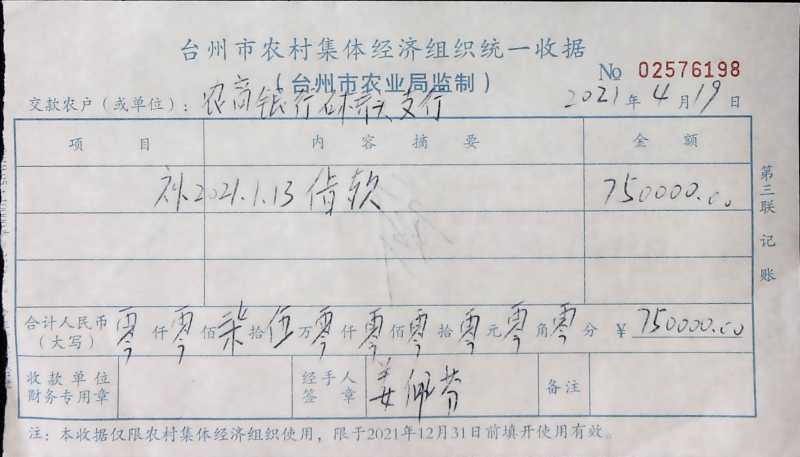 台州市农村集体经济组织统一收据
(台州市农业局监制)
№ 02576198
交款农户(或单位): 农商银行 支行
2021年4月19日
项目 内容摘要 金额
补2021.1.13借款 750000.00
第三联 记账
合计人民币(大写) 零仟零佰柒拾伍万零仟零佰零拾零元零角零分 ¥750000.00
收款单位财务专用章 经手人签章 姜佩芬 备注
注:本收据仅限农村集体经济组织使用,限于2021年12月31日前填开使用有效。